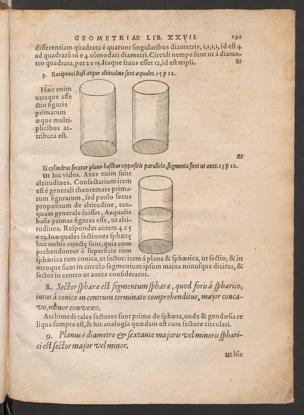 GEOMETRIAE LIB. XXVII.
differentiam quadrata è quatuor singularibus diametris, 1,1,1,1, id est 4.
ad quadratū 16 e 4. cōmodati diametri. Circuli nempe sunt ut à diame-
tro quadrata, per 2 e 15. Itaque fraus esset 12, id est tripli.
3. Reciproci basi atque altitudine sunt æquales. 15 p 12.
Hæc enim
utraque affe
ctio figuris
primarum
æque multi-
plicibus at-
tributa est.
Si cylindrus secatur plano basibus opposito parallelo, segmenta sunt ut axes. 13 p 12.
Ut hîc vides. Axes enim sunt
altitudines. Consectarium item
est è generali theoremate prima-
rum figurarum, sed paulo secus
propositum de altitudine, tan-
quam generale fuisset, Æqualis
basis primas figuras esse, ut alti-
tudines. Respondet autem 4 e 5
e 23. Inæquales sectiones sphæræ
huc nobis rejectę sunt, quia com
prehenduntur à superficie tum
sphærica tum conica, ut sector: item à plana & sphærica, ut sectio, & in
utroque sicut in circulo segmentum ipsum majus minusque dicitur, &
sector in centro ut antea consideratur.
8. Sector sphæræ est segmentum sphæræ, quod foris à sphærico,
intus à conico in centrum terminato comprehenditur, major conca-
vo, minor convexo.
Archimedi tales sectores sunt primo de sphæra, unde & geodæsia re
liqua sumpta est, & hîc analogia quædam est cum sectore circulari.
9. Planus è diametro & sextante majoris vel minoris sphæri-
ci est sector major vel minor.
Ut hîc